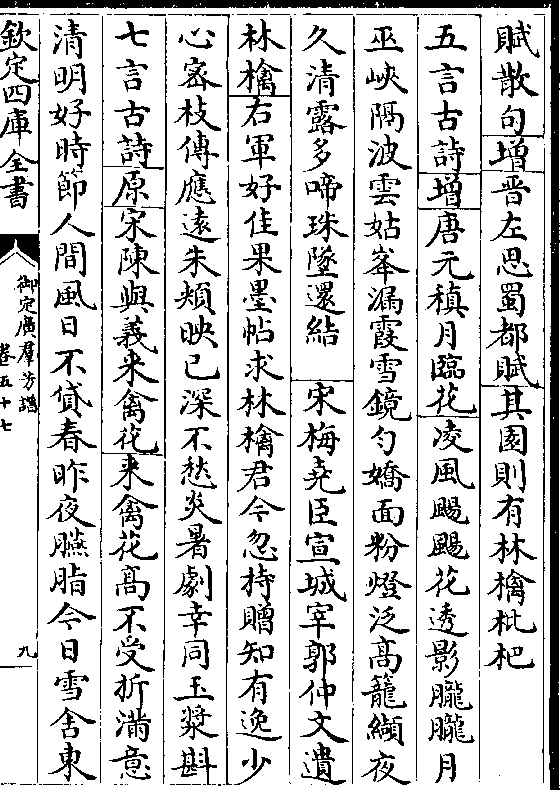 賦散句增晉左思蜀都賦其園則有林檎枇杷
五言古詩增唐元稹月臨花凌風颺颺花透影朧朧月
巫峽隔波雲姑峯漏霞雪鏡勻嬌面粉燈泛高籠纈夜
久清露多啼珠墜還結　宋梅堯臣宣城宰郭仲文遺
林檎右軍好佳果墨帖求林檎君今忽持贈知有逸少
心密枝傳應遠朱頰映已深不愁炎暑劇幸同玉漿斟
七言古詩原宋陳與義來禽花來禽花高不受折滿意
清明好時節人間風日不貸春昨夜臙脂今日雪舍東
欽定四庫全書
御定廣羣芳譜
卷五十七
九